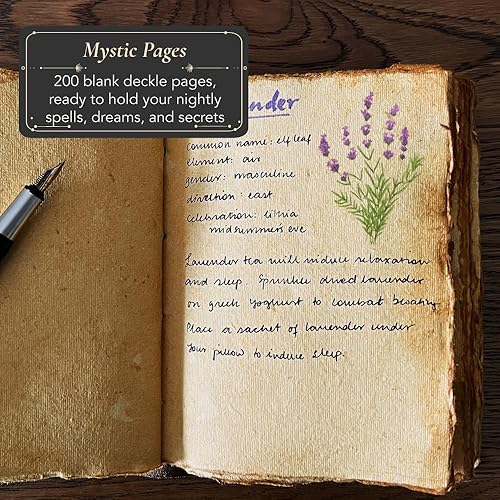 Mystic Pages
200 blank deckle pages,
ready to hold your nightly
spells, dreams, and secrets
nder
common name: elf leaf
element: air
gender: masculine
direction: east
celebration: litha
midsummers eve
Lavender tea will induce relaxation
and sleep. Sprinkle dried lavender
on greek yoghurt to combat bloating
Place a sachet of lavender under
your pillow to induce sleep.